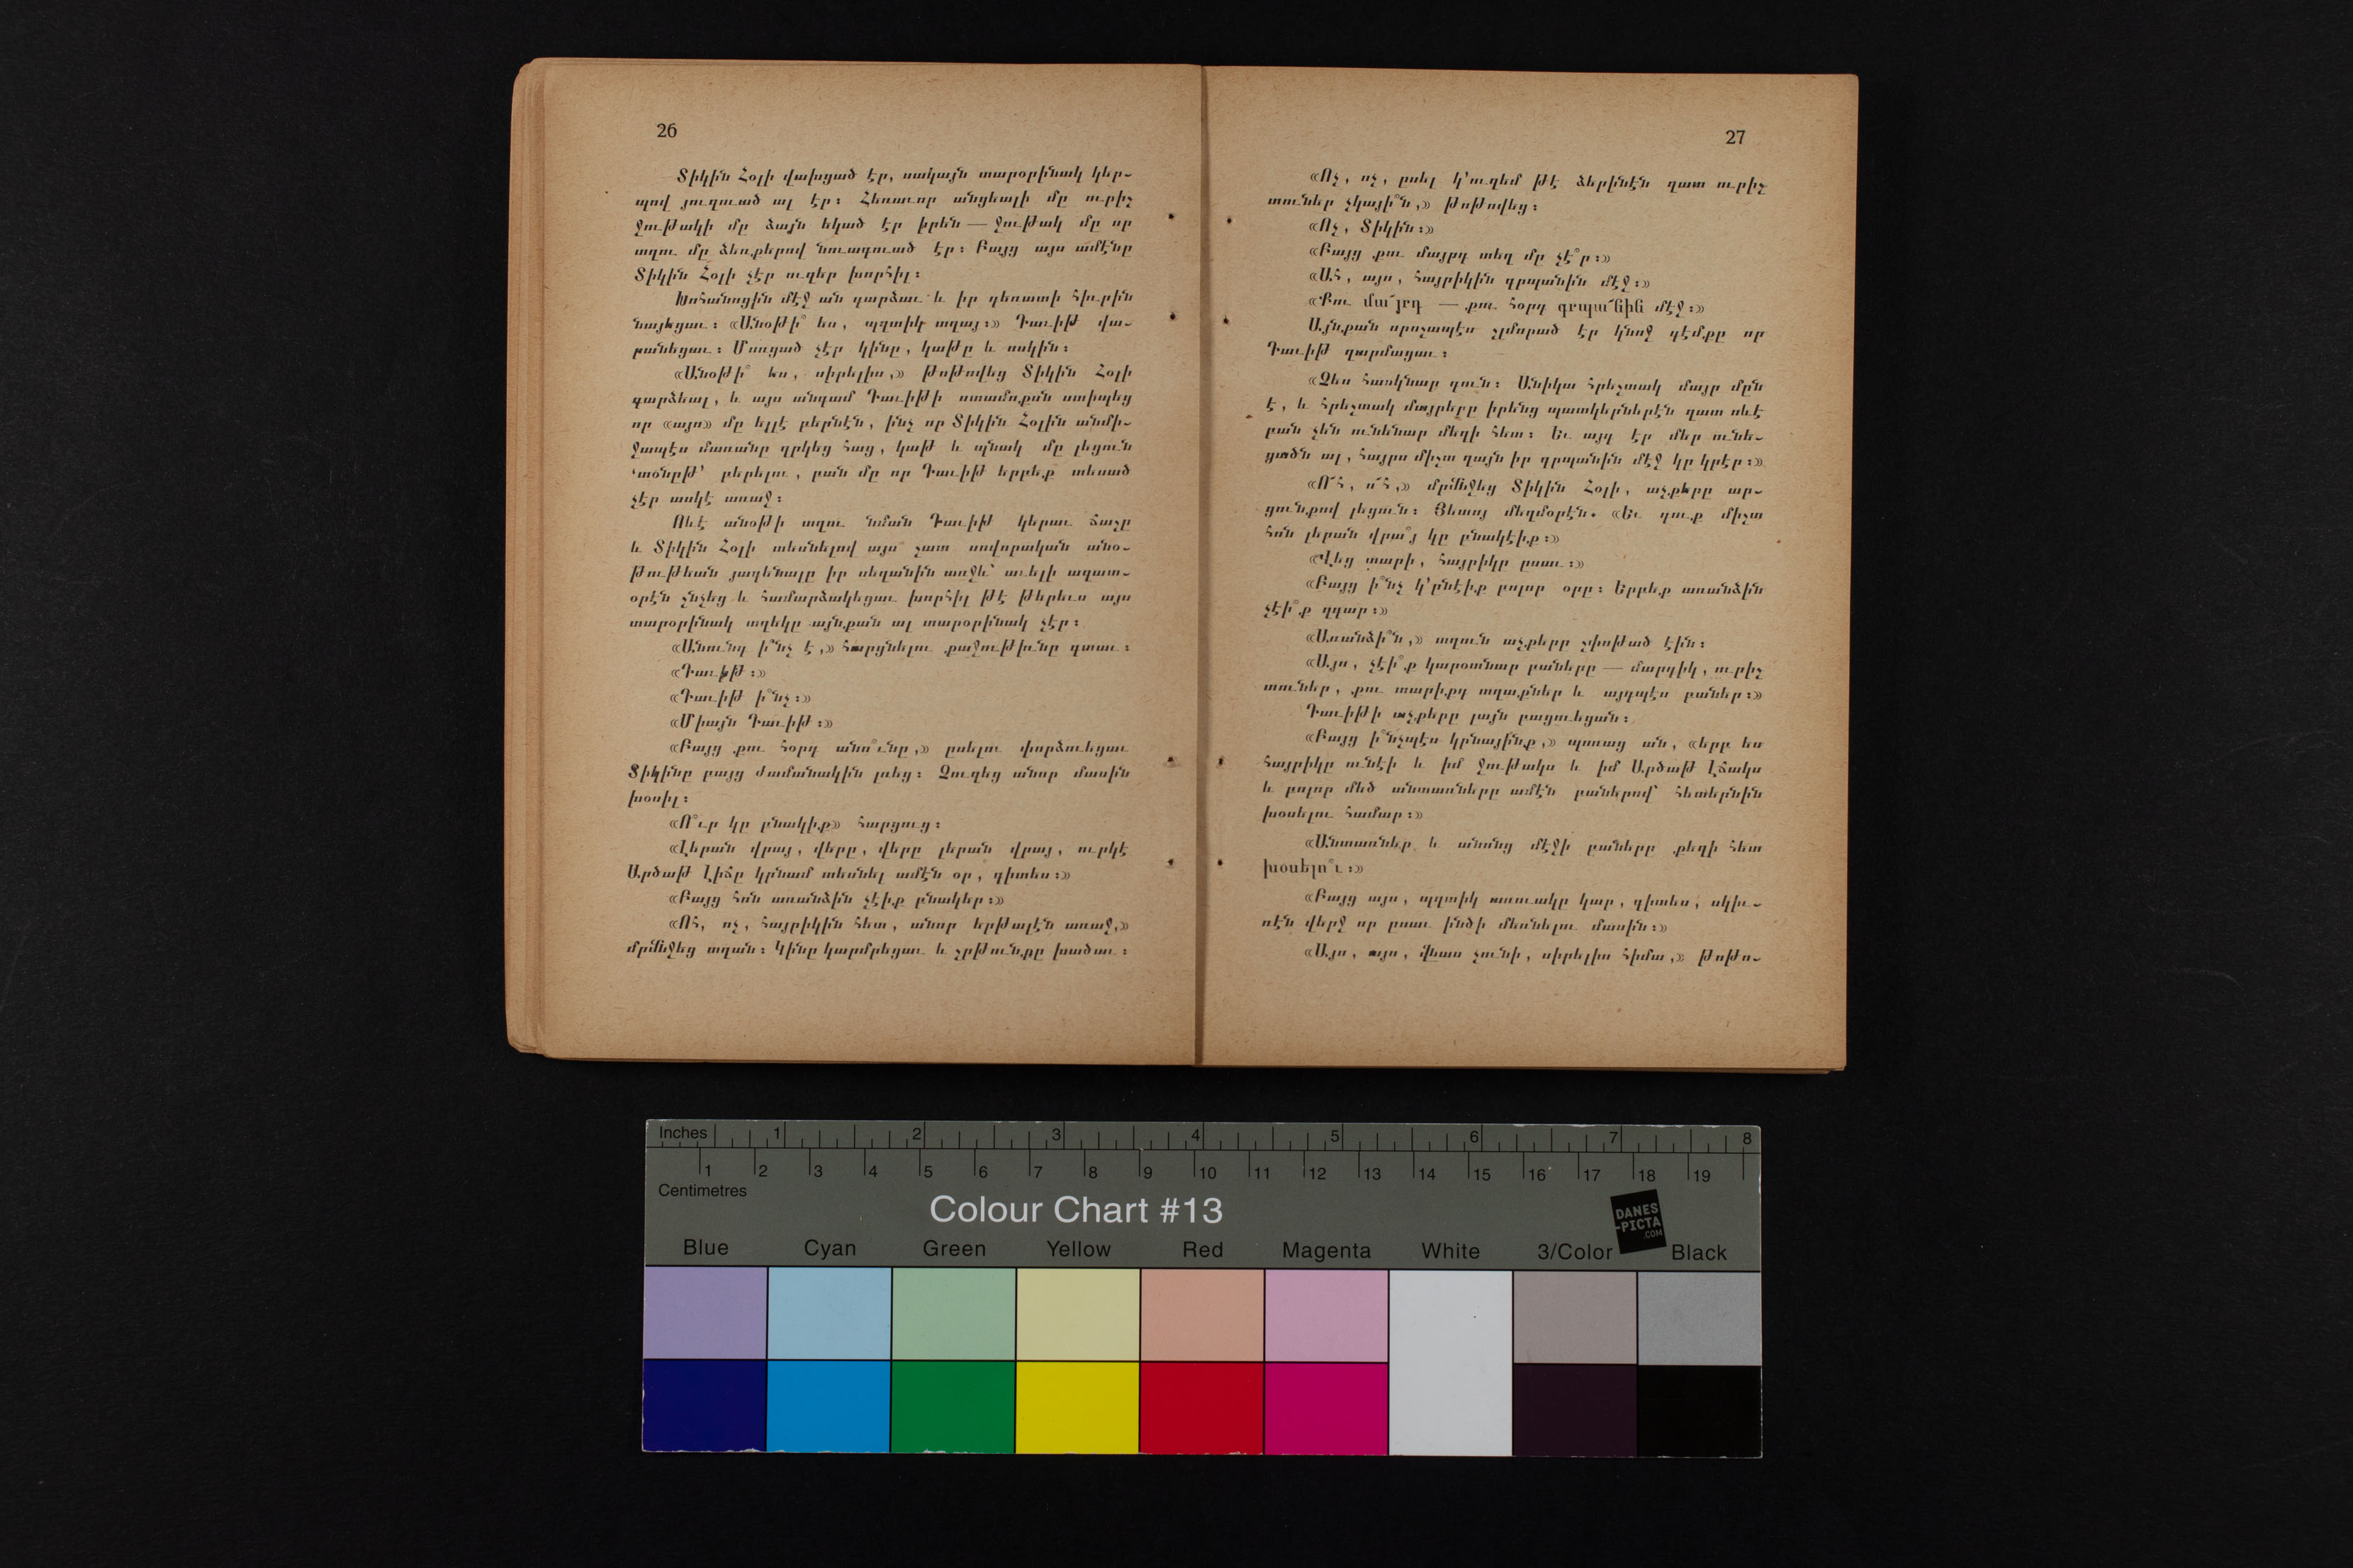 26
Տիկին Հօլի վախցած էր, սակայն տարօրինակ կեր-
պով յուզուած ալ էր։ Հեռաւոր անցեալի մը ուրիշ
ջութակի մը ձայն եկած էր իրեն — ջութակ մը որ
աղու մը ձեռքերով նուագուած էր։ Բայց այս ամէնը
Տիկին Հօլի չէր ուզեր խորհիլ։
Խոհանոցին մէջ ան դարձաւ և իր դեռատի հիւրին
նայեցաւ։ «Անօթի՞ ես, պզտիկ տղայ։» Դաւիթ վա-
րանեցաւ։ Մոռցած չէր կինը, կաթը և ոսկին։
«Անօթի՞ ես, սիրելիս,» թոթովեց Տիկին Հօլի
դարձեալ, և այս անգամ Դաւիթի ստամոքսն ստիպեց
որ «այո» մը ելլէ բերնէն, ինչ որ Տիկին Հօլին անմի-
ջապէս մառանը ղրկեց հաց, կաթ և պնակ մը լեցուն
‘տօնըթ’ բերելու, բան մը որ Դաւիթ երբեք տեսած
չէր ասկէ առաջ։
Ոևէ անօթի աղու նման Դաւիթ կերաւ ճաշը
և Տիկին Հօլի տեսնելով այս շատ սովորական անօ-
թութեան յագենալը իր սեղանին առջև՝ աւելի ազատ-
օրէն շնչեց և համարձակեցաւ խորհիլ թէ թերեւս այս
տարօրինակ տղեկը այնքան ալ տարօրինակ չէր։
«Անունդ ի՞նչ է,» հարցնելու քաջութիւնը գտաւ։
«Դաւիթ։»
«Դաւիթ ի՞նչ։»
«Միայն Դաւիթ։»
«Բայց քու հօրդ անո՞ւնը,» ըսելու փորձուեցաւ
Տիկինը բայց ժամանակին լռեց։ Չուզեց անոր մասին
խօսիլ։
«Ո՞ւր կը բնակիք» հարցուց։
«Լերան վրայ, վերը, վերը լերան վրայ, ուրկէ
Արծաթ Լիճը կրնամ տեսնել ամէն օր, գիտես։»
«Բայց հոն առանձին չէիք բնակեր։»
«Ոհ, ոչ, հայրիկին հետ, անոր երթալէն առաջ,»
մրմնջեց տղան։ Կինը կարմրեցաւ և շրթունքը խածաւ։
27
«Ոչ, ոչ, ըսել կ՚ուզեմ թէ ձերինէն զատ ուրիշ
տուներ չկայի՞ն,» թոթովեց։
«Ոչ, Տիկին։»
«Բայց քու մայրդ տեղ մը չէ՞ր։»
«Ահ, այո, հայրիկին գրպանին մէջ։»
«Քու մա՜յրդ — քու հօրդ գրպա՜նին մէջ։»
Այնքան որոշապէս շլմորած էր կնոջ դէմքը որ
Դաւիթ զարմացաւ։
«Չես հասկնար դուն։ Անիկա հրեշտակ մայր մըն
է, և հրեշտակ մայրերը իրենց պատկերներէն զատ ոևէ
բան չեն ունենար մեզի հետ։ Եւ այդ էր մեր ունե-
ցածն ալ, հայրս միշտ զայն իր գրպանին մէջ կը կրէր։»
«Ո՜հ, ո՜հ,» մրմնջեց Տիկին Հօլի, աչքերը ար-
ցունքով լեցուն։ Յետոյ մեղմօրէն. «Եւ դուք միշտ
հոն լերան վրա՞յ կը բնակէիք։»
«Վեց տարի, հայրիկը ըսաւ։»
«Բայց ի՞նչ կ՚ընէիք բոլոր օրը։ Երբեք առանձին
չէի՞ք զգար։»
«Առանձի՞ն,» տղուն աչքերը շփոթած էին։
«Այո, չէի՞ք կարօտնար բաները — մարդիկ, ուրիշ
տուներ, քու տարիքդ տղաքներ և այդպէս բաներ։»
Դաւիթի աչքերը լայն բացուեցան։
«Բայց ի՞նչպէս կրնայինք,» պոռաց ան, «երբ ես
հայրիկը ունէի և իմ ջութակս և իմ Արծաթ Լճակս
և բոլոր մեծ անտառները ամէն բաներով՝ հետերնին
խօսելու համար։»
«Անտառներ և անոնց մէջի բաները քեզի հետ
խօսելո՞ւ։»
«Բայց այո, պզտիկ առուակը կար, գիտես, սկիւ-
ռէն վերջ որ ըսաւ ինծի մեռնելու մասին։»
«Այո, այո, վնաս չունի, սիրելիս հիմա,» թոթո-
Inches 1 2 3 4 5 6 7 8
1 2 3 4 5 6 7 8 9 10 11 12 13 14 15 16 17 18 19
Centimetres
Colour Chart #13
DANES
-PICTA
.COM
Blue Cyan Green Yellow Red Magenta White 3/Color Black